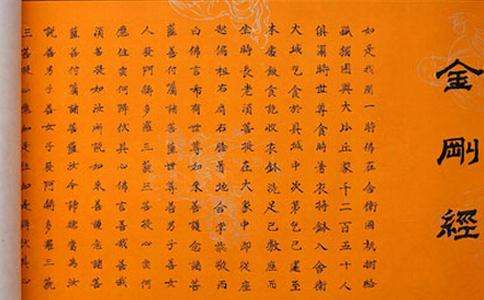 金剛經
如是我聞一時佛在舍衛國祇樹給
孤獨園與大比丘眾千二百五十人
俱爾時世尊食時著衣持鉢入舍衛
大城乞食於其城中次第乞已還至
本處飯食訖收衣鉢洗足已敷座而
坐時長老須菩提在大眾中即從座
起偏袒右肩右膝著地合掌恭敬而
白佛言希有世尊如來善護念諸菩
薩善付囑諸菩薩世尊善男子善女
人發阿耨多羅三藐三菩提心云何
應住云何降伏其心佛言善哉善哉
須菩提如汝所說如來善護念諸菩
薩善付囑諸菩薩汝今諦聽當為汝
說善男子善女人發阿耨多羅三藐
三菩提心應如是住如是降伏其心